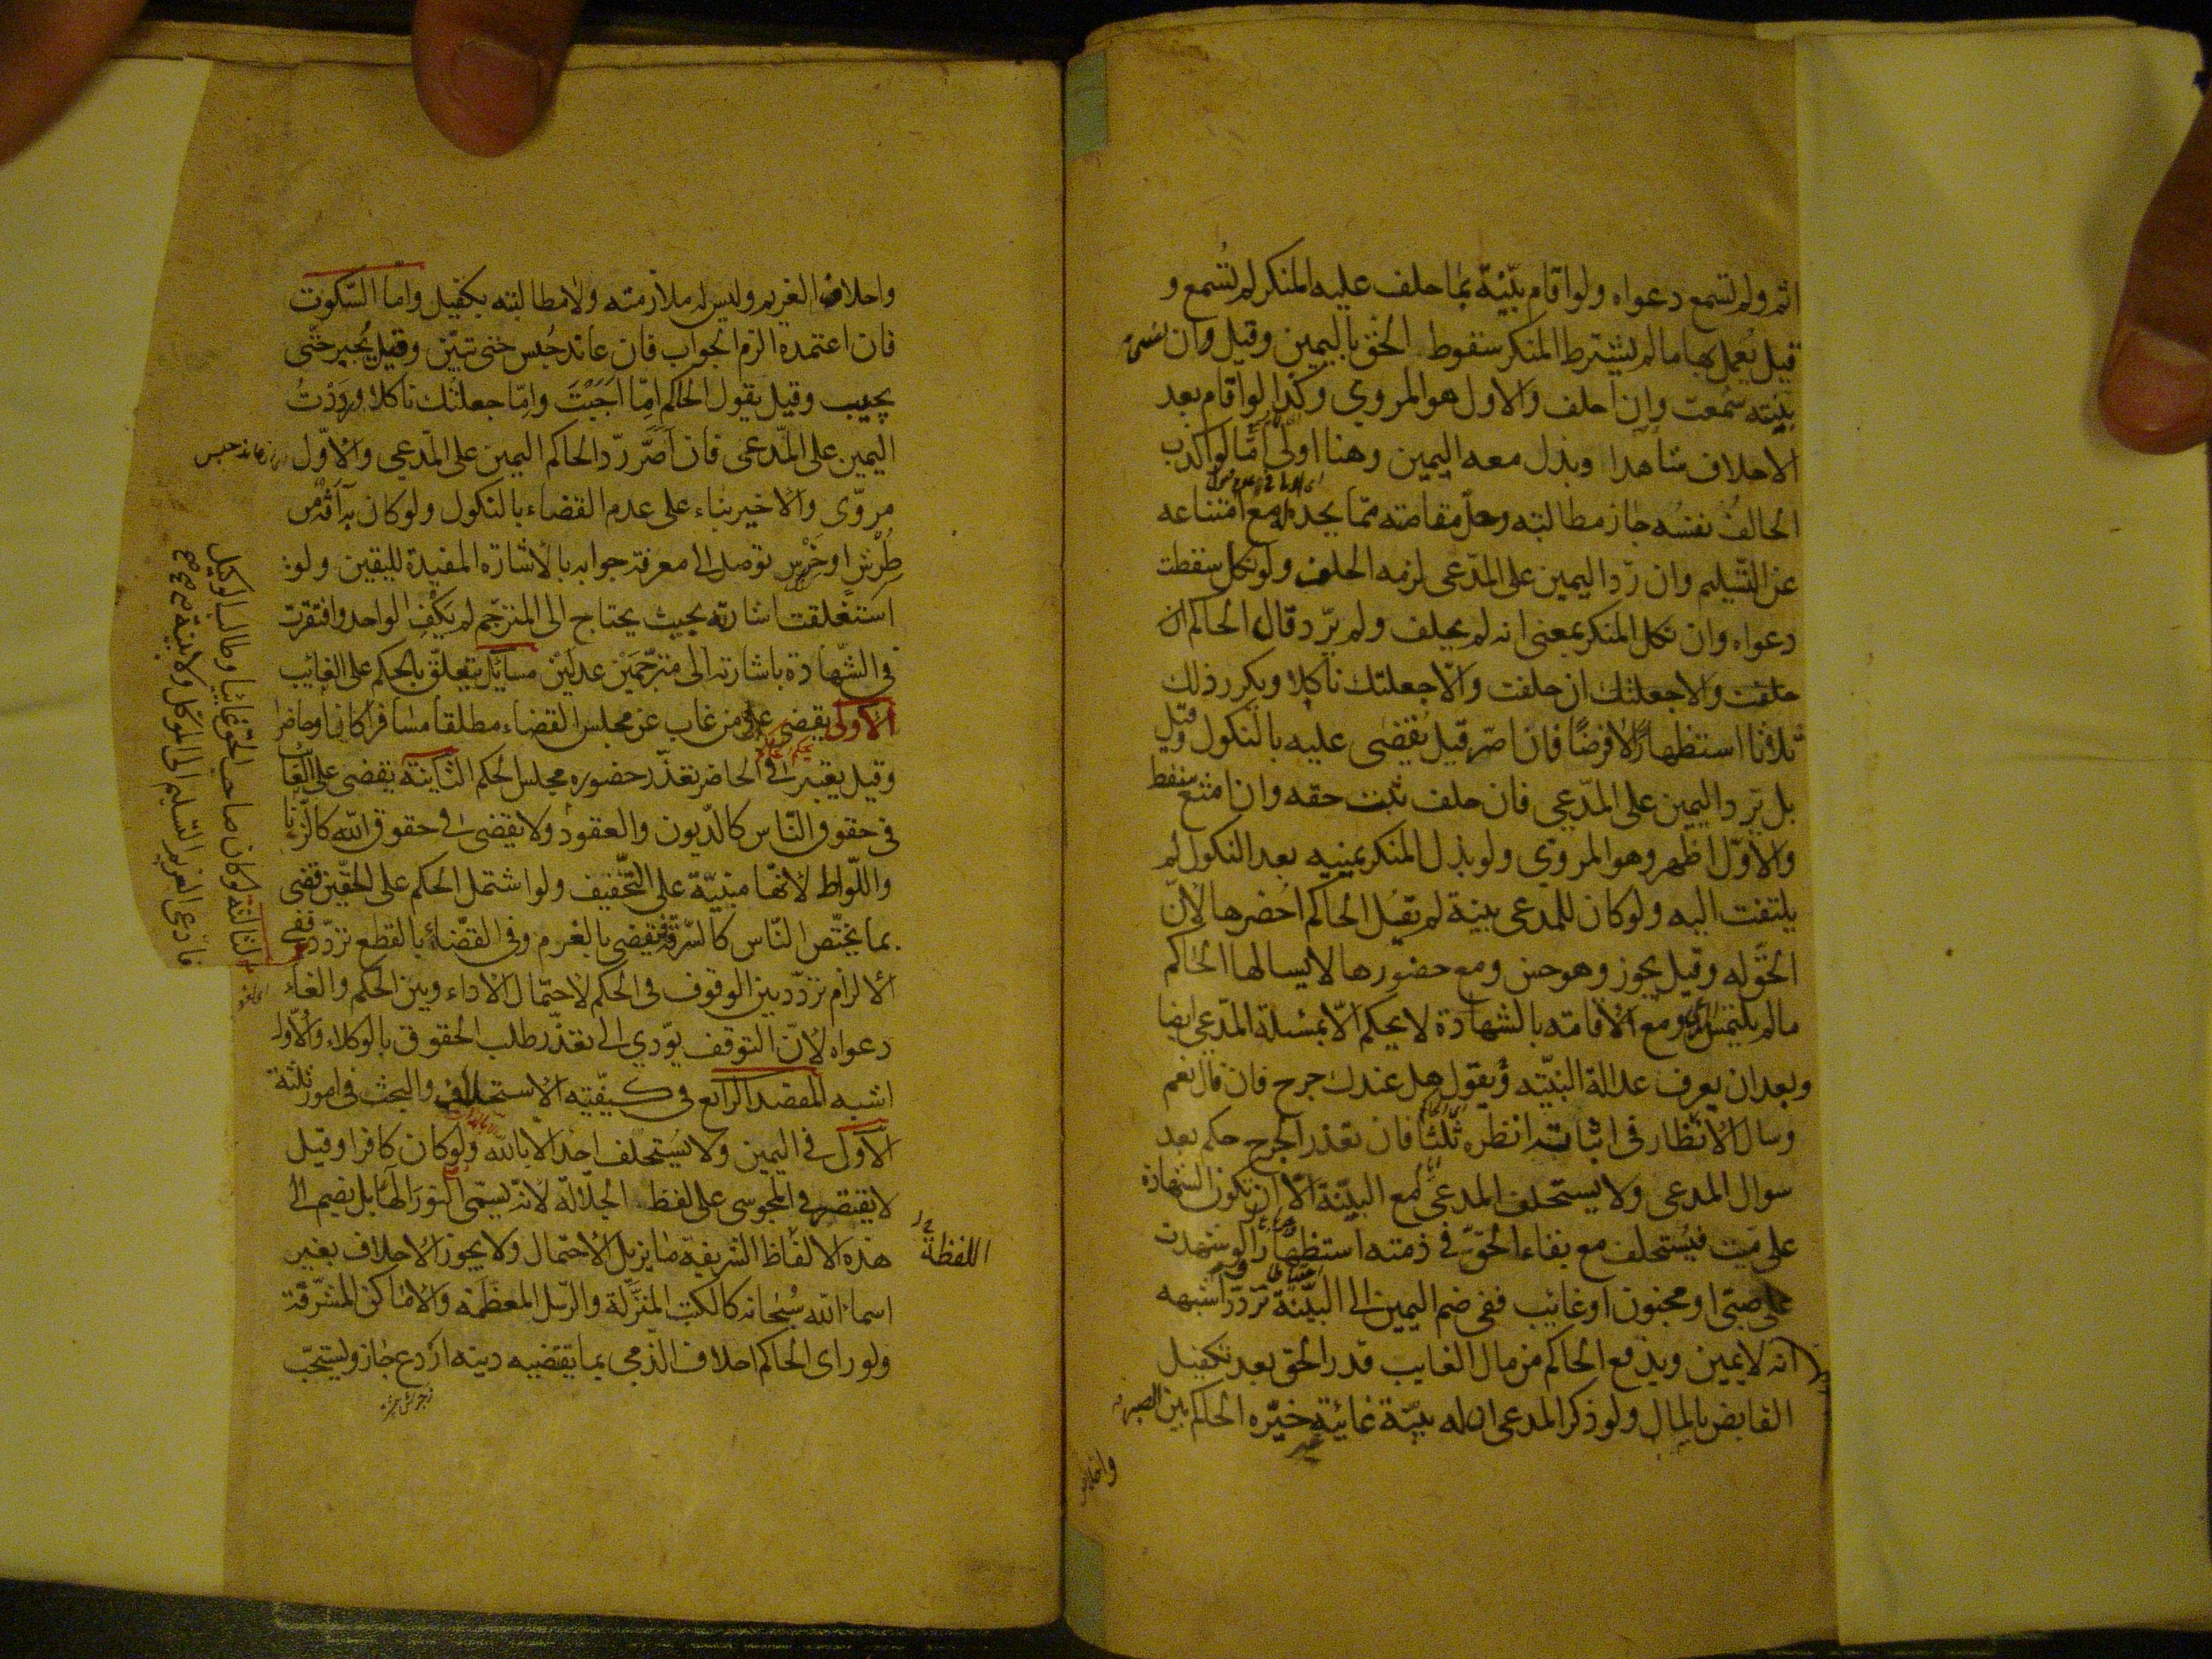 اثم ولم تسمع دعواه ولو اقام بيّنة بما حلف عليه المنكر لم تُسمع و
قيل يُعمل بها ما لم يشترط المنكر سقوط الحق باليمين وقيل وان نسى
بيّنته سُمعت وان احلف والاول هو المروي وكذا لو اقام بعد
الاحلاف شاهدا وبذل معه اليمين وهنا اولى امّا لو اكذب
الحالفُ نفسَه جاز مطالبته وحلّ مقاصته ممّا يجد له مع امتناعه
عن التسليم وان ردّ اليمين على المدّعى لزمه الحلف ولو نكل سقطت
دعواه وان نكل المنكر بمعنى انه لم يحلف ولم يردّ قال الحاكم ان
حلفت والا جعلتك ان حلفت والّا جعلتك ناكلا ويكرر ذلك
ثلاثا استظهارًا لا فرضًا فان اصرّ قيل يُقضى عليه بالنكول وقيل
بل يردّ اليمين على المدّعي فان حلف ثبت حقه وان امتنع سقط
والاوّل اظهر وهو المروي ولو بذل المنكر يمينه بعد النكول لم
يلتفت اليه ولو كان للمدعى بينة لم يقل الحاكم احضرها لانّ
الحقّ له وقيل يجوز وهو حسن ومع حضورها لا يسالها الحاكم
ما لم يلتمس المدعى ومع الاقامته بالشهادة لا يحكم الّا بمسئلة المدّعي ايضا
وبعد ان يعرف عدالة البيّنه ويقول هل عندك جرح فان قال نعم
وسال الانظار في اثباته انظره ثلثا فان تعذر الجرح حكم بعد
سوال المدعى ولا يستحلف المدعى مع البيّنة الّا ان تكون الشهادة
على ميت فيُستحلف مع بقاء الحقّ في ذمته استظهارًا ولو شهدت
على صبيّ او مجنون او غايب ففى ضم اليمين الى البيّنة تردّد اشبهه
انه لا يمين ويدفع الحاكم من مال الغايب قدر الحق بعد تكفيل
القابض بالمال ولو ذكر المدعى ان له بيّنة غائبة خيّره الحاكم بين الصبر
واحلاف
واحلاف الغريم وليس له ملازمته ولا مطالبته بكفيل وامّا السّكوت
فان اعتمده الزم الجواب فان عاند حُبس حتى تبيّن وقيل يُجبر حتّى
يجيب وقيل يقول الحاكم امّا اَجَبْتَ وامّا جعلتك ناكلا ورَدَدْتُ
اليمين على المدّعى فان اَصَرَّ ردّ الحاكم اليمين على المدّعي والاوّل
مروّى والاخير بناء على عدم القضاء بالنكول ولو كان به آفة من
طُرْشٍ او خَرْسٍ توصل الى معرفة جوابه بالاشارة المفيدة لليقين ولو
استغلقت اشارته بحيث يحتاج الى المترجّم لم يَكْفِ الواحد وافتقرت
في الشّهادة باشارته الى مترجّمَيْن عدلَيْن مسائل يتعلّق بالحكم على الغائب
الاولى يقضى على من غاب عن مجلس القضاء مطلقا مسافرا كان او حاضرا
وقيل يعتبر في الحاضر تعذّر حضوره مجلس الحكم الثانية يقضى على الغائب
في حقوق النّاس كالديون والعقود ولا يقضى في حقوق اللّه كالزّنا
واللّواط لانها مبنيّة على التّخفيف ولو اشتمل الحكم على الحقّين قضى
بما يختّص النّاس كالسّرقة يقضى بالغرم وفى القضاء بالقطع تردّد
الثالثة لو كان صاحب الحق غائبا وطالب الوكيل
فادّعى الغريم التسليم الى الموكّل ولا بينة ففي
الالزام تردّد بين الوقوف في الحكم لاحتمال الاداء وبين الحكم والغاء
دعواه لانّ التوقف يؤدي الى تعذّر طلب الحقوق بالوكلاء والاّول
اشبه المقصد الرابع في كيفيّة الاستحلاف والبحث في امور ثلثة
الاوّل في اليمين ولا يُستحلف احد الّا باللّه ولو كان كافرا وقيل
لا يقتصر في المجوسى على لفظ الجلالة لانّه يسمّى النور الٰها بل يضم الى
اللفظة
هذه الالفاظ الشريفة ما يزيل الاحتمال ولا يجوز الاحلاف بغير
اسماء اللّه سُبحانه كالكتب المنزَّلة والرّسل المعظمة والاماكن المشرّفة
ولو راى الحاكم احلاف الذّمي بما يقتضيه دينه اردع جاز ويستحبّ